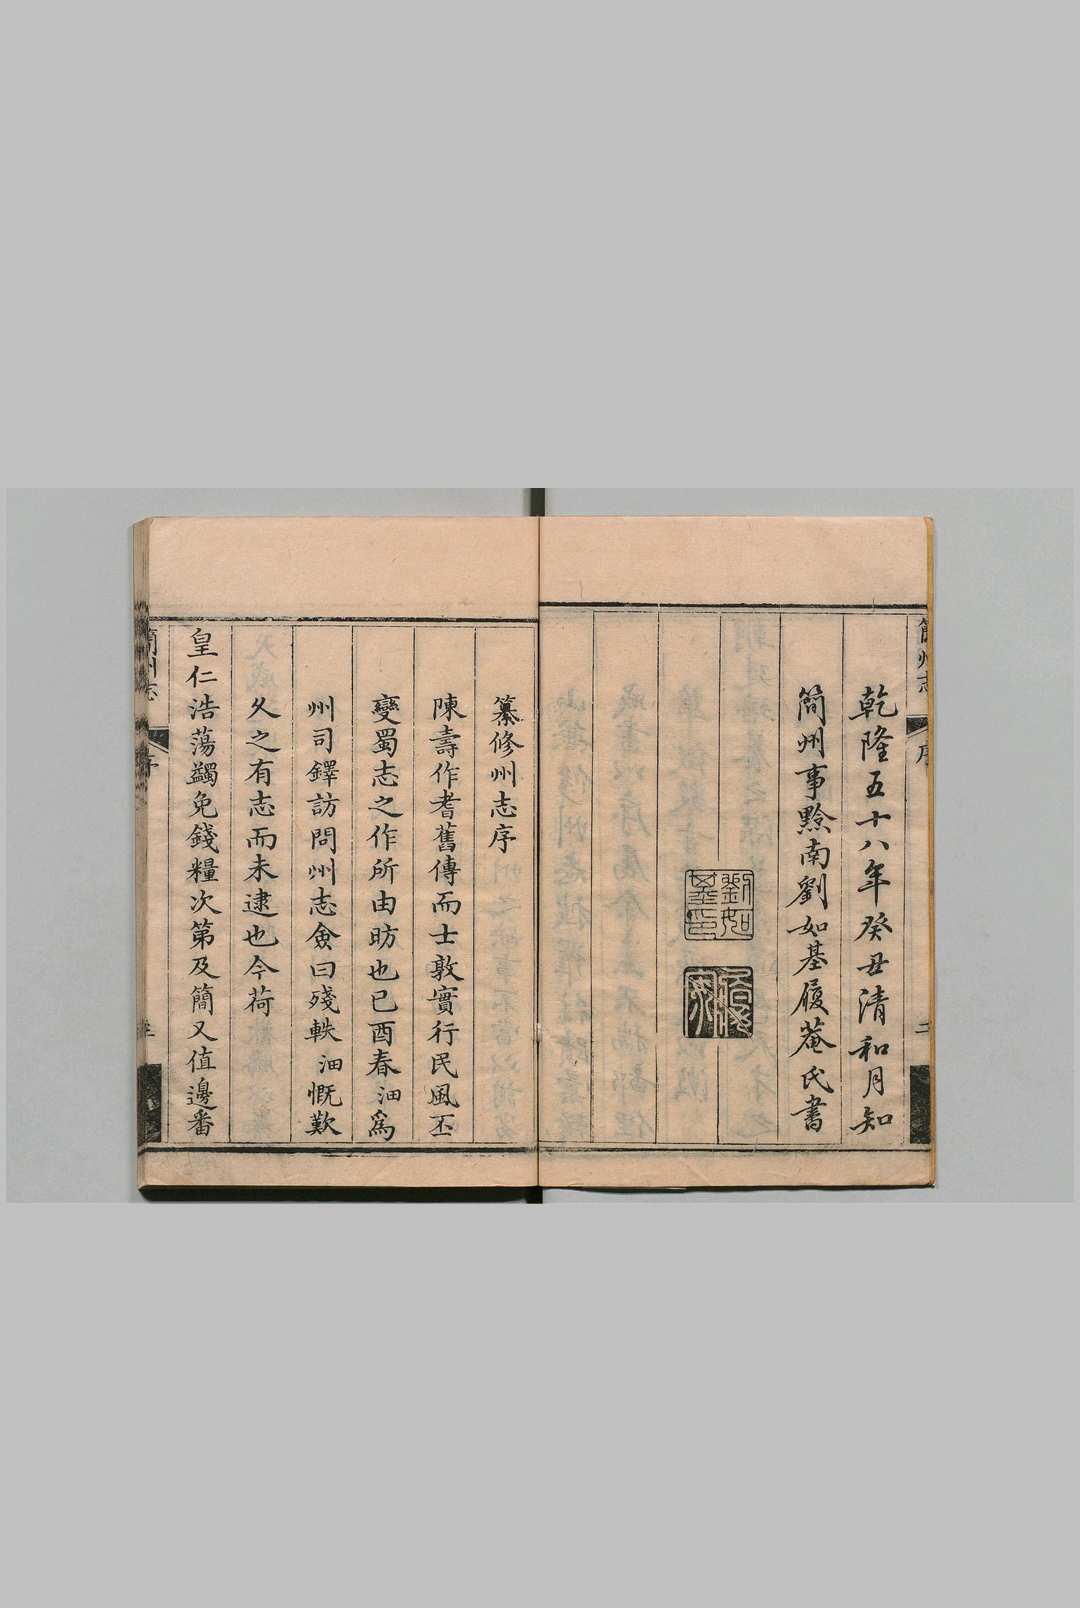 簡州志
序
乾隆五十八年癸丑清和月知
簡州事黔南劉如基履菴氏書
劉如
基印
纂修州志序
陳壽作耆舊傳而士敦實行民風丕
變蜀志之作所由昉也己酉春油為
州司鐸訪問州志僉曰殘軼油慨歎
久之有志而未逮也今荷
皇仁浩蕩蠲免錢糧次第及簡又值邊番
簡州志
序